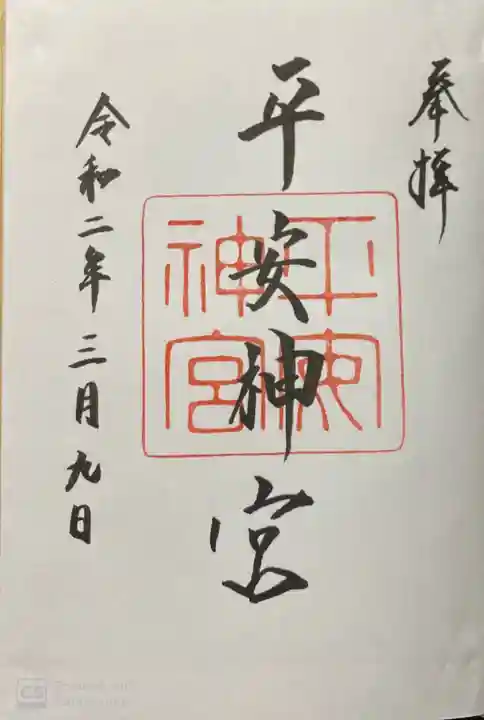 奉拝
平安神宮
平安神宮
令和二年三月九日
CS